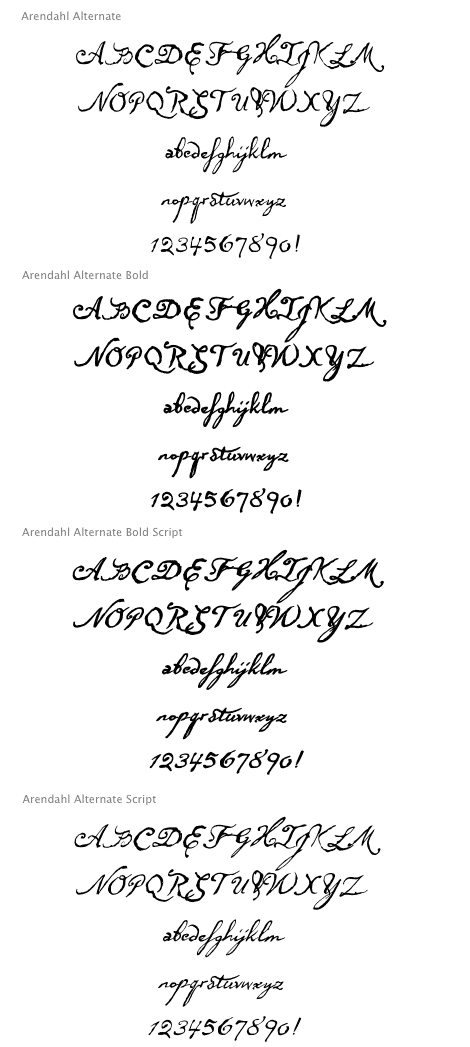 Arendahl Alternate
ABCDEFGHIJKLM
NOPQRSTUVWXYZ
abcdefghijklm
nopqrstuvwxyz
1234567890!
Arendahl Alternate Bold
ABCDEFGHIJKLM
NOPQRSTUVWXYZ
abcdefghijklm
nopqrstuvwxyz
1234567890!
Arendahl Alternate Bold Script
ABCDEFGHIJKLM
NOPQRSTUVWXYZ
abcdefghijklm
nopqrstuvwxyz
1234567890!
Arendahl Alternate Script
ABCDEFGHIJKLM
NOPQRSTUVWXYZ
abcdefghijklm
nopqrstuvwxyz
1234567890!